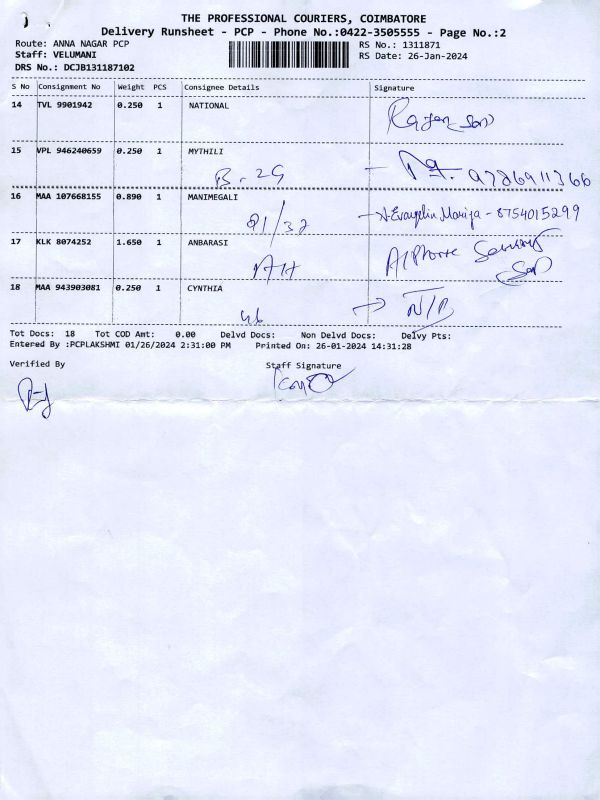 THE PROFESSIONAL COURIERS, COIMBATORE
Delivery Runsheet - PCP - Phone No.:0422-3505555 - Page No.:2
Route: ANNA NAGAR PCP RS No.: 1311871
Staff: VELUMANI RS Date: 26-Jan-2024
DRS No.: DCJB131187102
S No Consignment No Weight PCS Consignee Details Signature
14 TVL 9901942 0.250 1 NATIONAL
15 VPL 946240659 0.250 1 MYTHILI
B-29 9786911366
16 MAA 107668155 0.890 1 MANIMEGALI
81/32 8754015299
17 KLK 8074252 1.650 1 ANBARASI
A14 Alphonse
18 MAA 943903081 0.250 1 CYNTHIA
46 → N/B
Tot Docs: 18 Tot COD Amt: 0.00 Delvd Docs: Non Delvd Docs: Delvy Pts:
Entered By :PCPLAKSHMI 01/26/2024 2:31:00 PM Printed On: 26-01-2024 14:31:28
Verified By Staff Signature